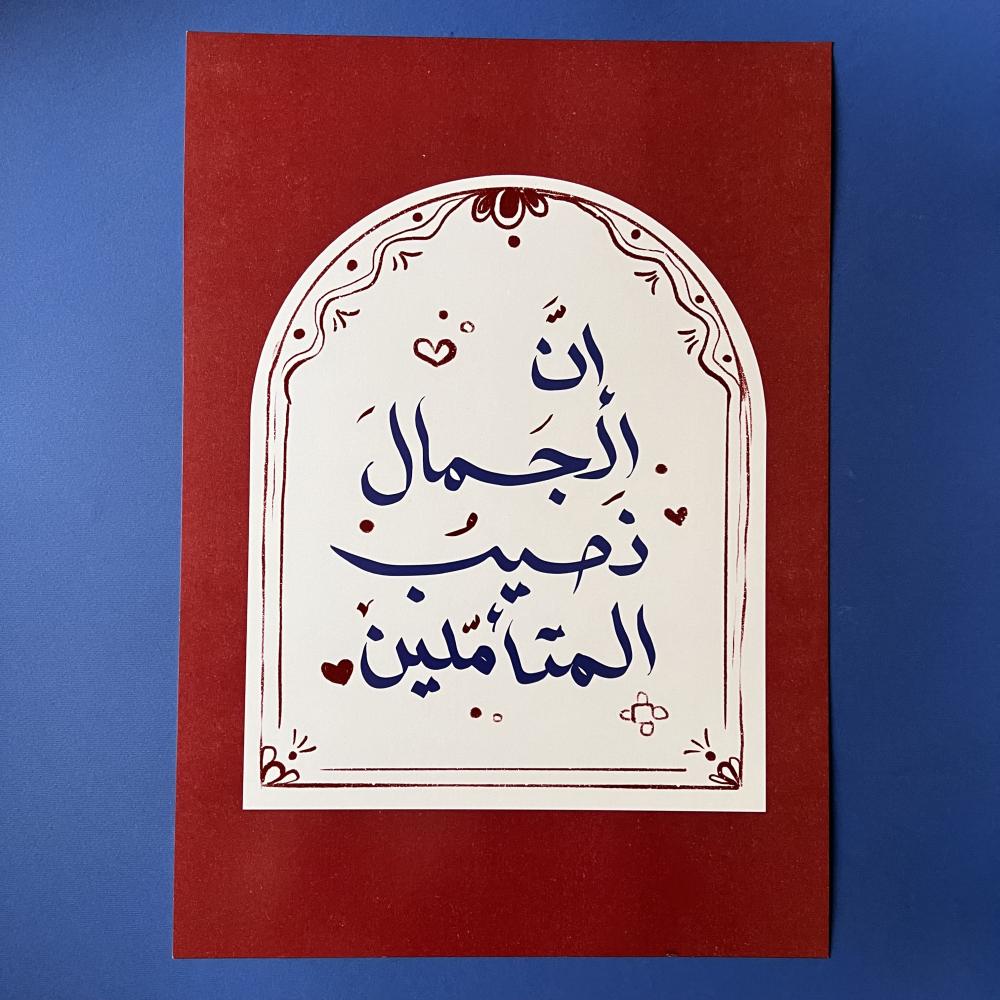 انَّ
الْجَمالَ
نَصيبُ
المتأمّلينْ